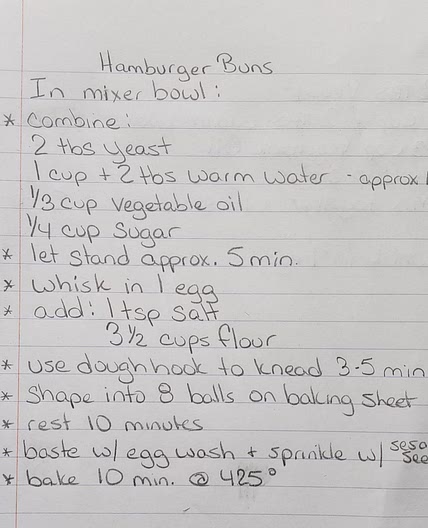 Hamburger Buns
In mixer bowl:
* Combine:
2 tbs yeast
1 cup + 2 tbs warm water - approx
1/3 cup vegetable oil
1/4 cup sugar
* let stand approx. 5 min.
* whisk in 1 egg
* add: 1 tsp salt
3 1/2 cups flour
* use dough hook to knead 3-5 min
* Shape into 8 balls on baking sheet
* rest 10 minutes
* baste w/ egg wash + sprinkle w/
* bake 10 min. @ 425°